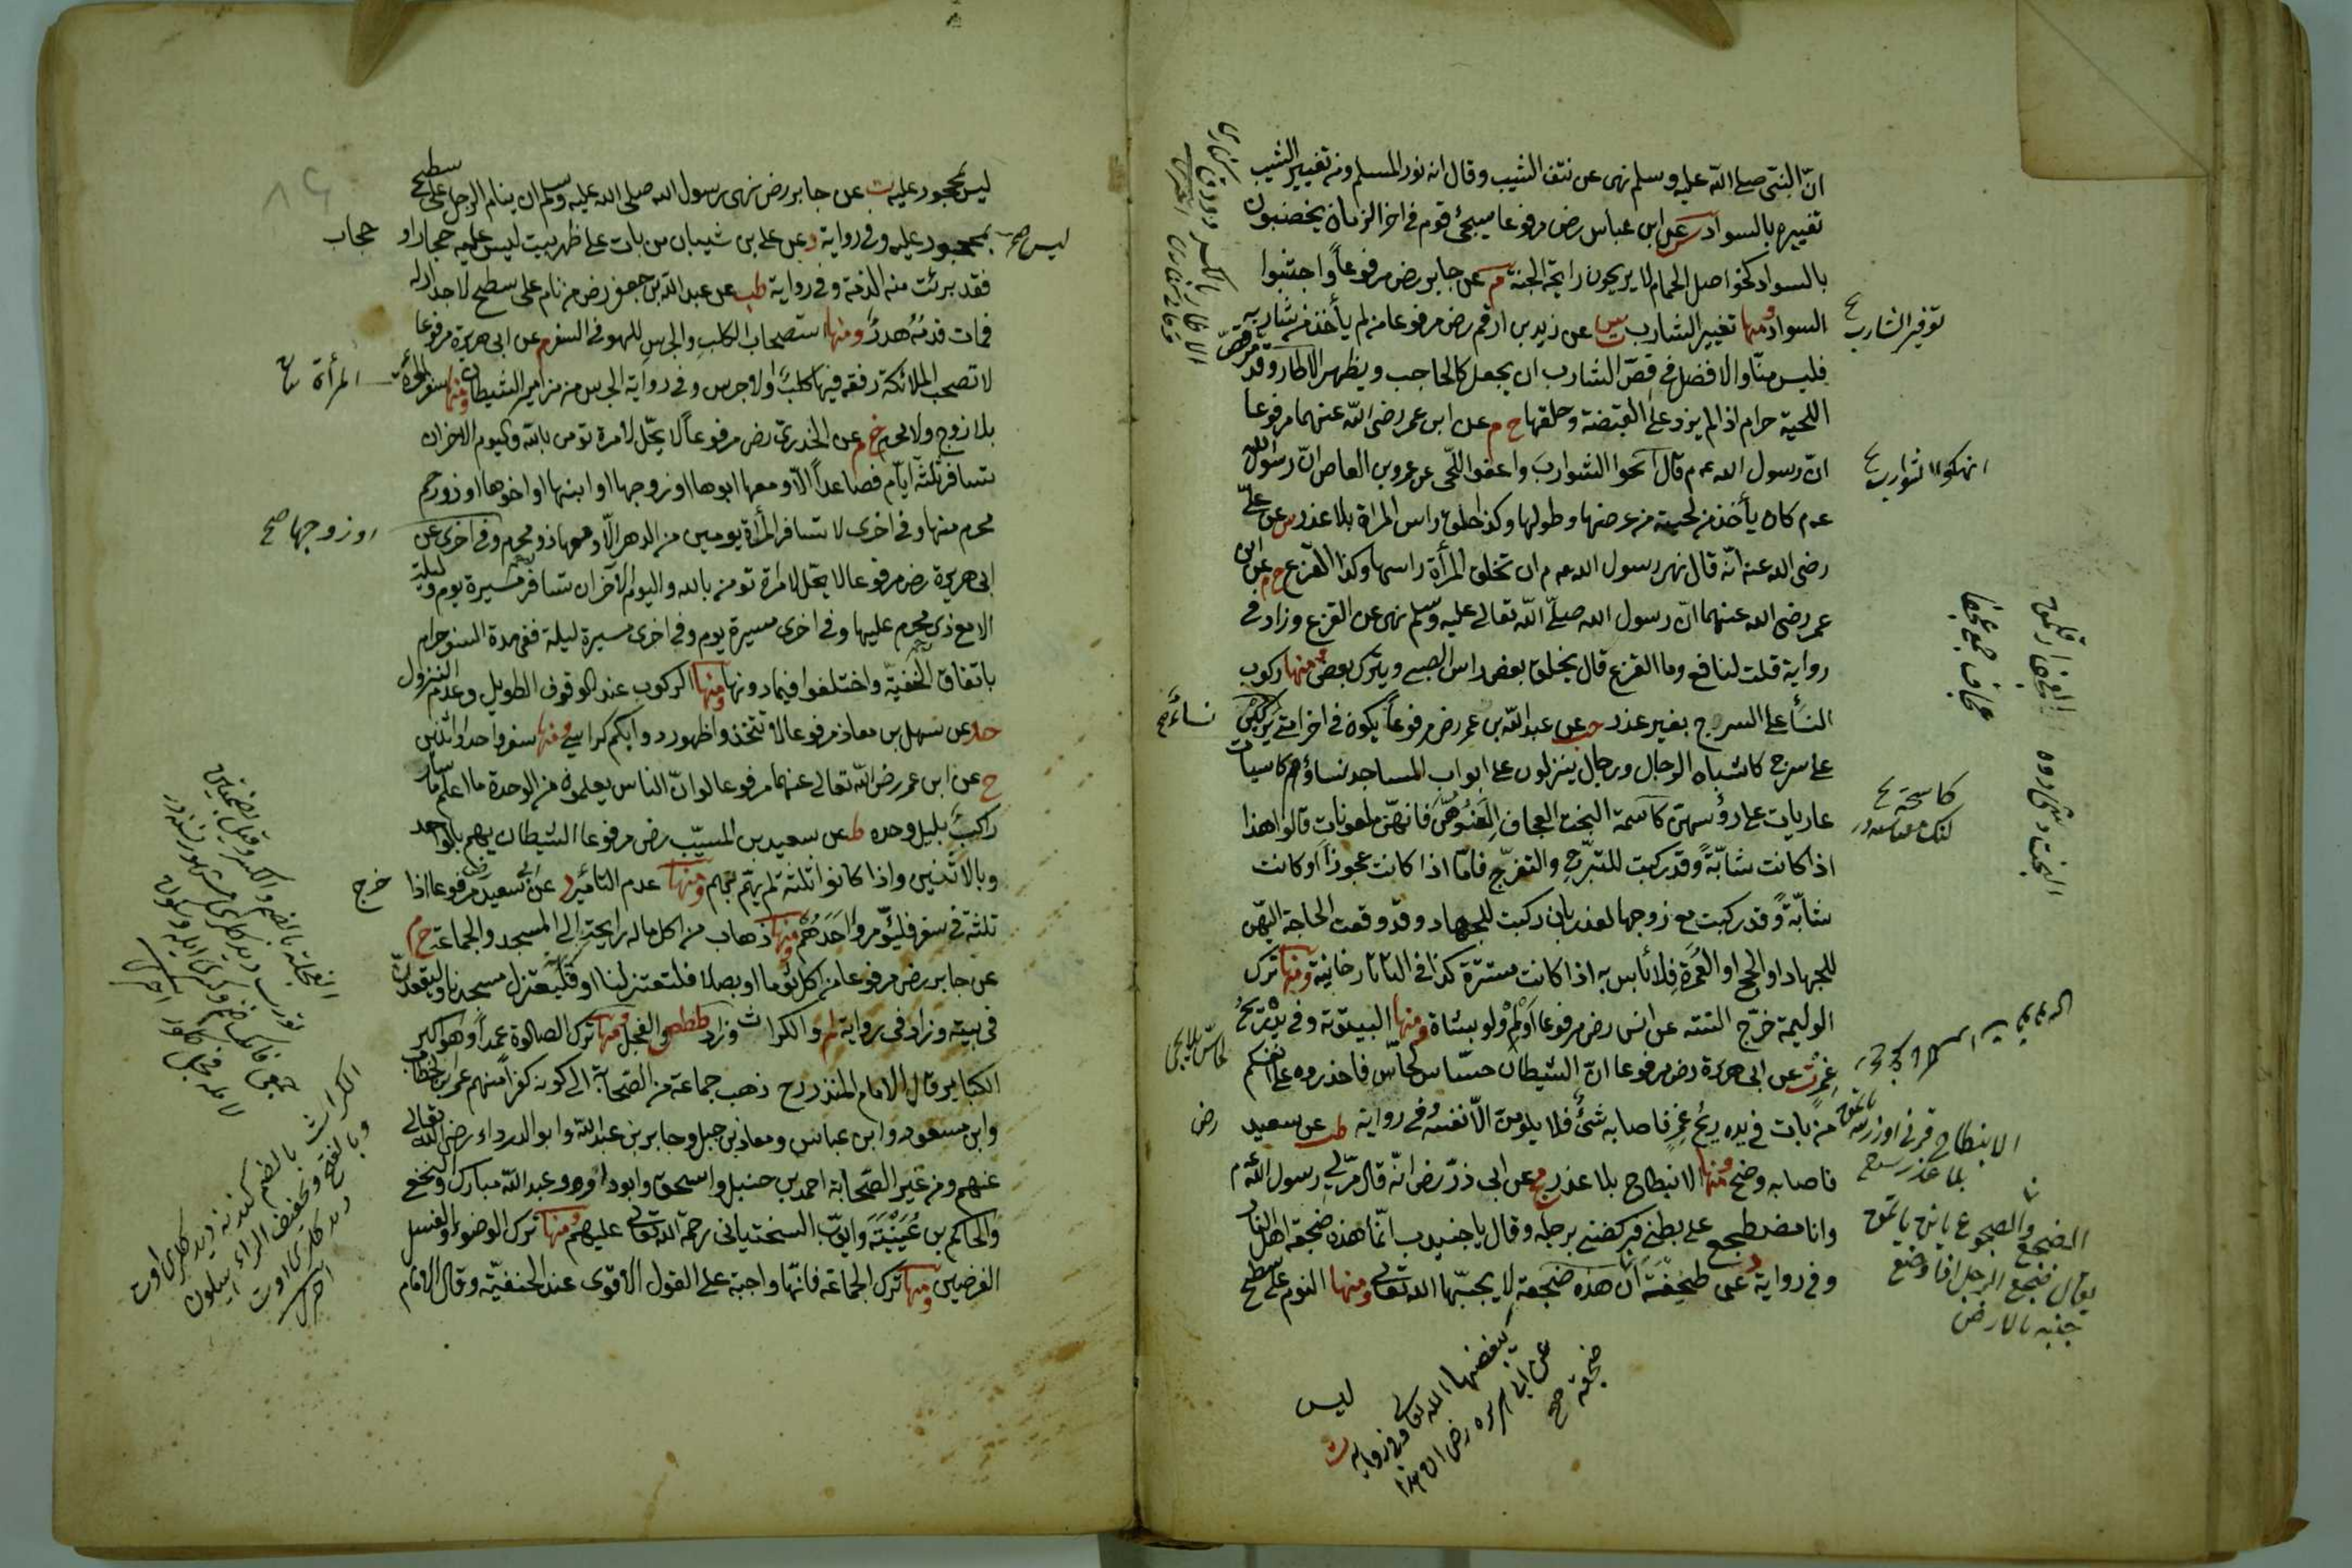 انّ النبّى صلى الله عليه وسلم نهى عن نتف الشيب وقال انه نور المسلم ومنه تغيير الشيب
تغييره بالسواد س عن ابن عباس رض مرفوعا سيجئ قوم فى اخر الزمان يخضبون
بالسواد كحواصل الحمام لا يريحون رايحة الجنة م عن جابر رض مرفوعاً واجتنبوا
السواد ومنها تغيير الشارب س عن زيد بن ارقم رض مرفوعا من لم يأخذ من شاربه
فليس منّا والافضل فى قصّ الشارب ان يجعل كالحاجب ويظهر الاطار وقد
اللحية حرام اذا لم يزد على القبضة وحلقها خ م عن ابن عمر رضى الله عنهما مرفوعا
انّ رسول الله عم قال احوا الشوارب واعفوا اللّحى عن عمرو بن العاص انّ رسول الله
عم كان يأخذ من لحيته من عرضها وطولها وكذا حلق راس المراة بلا عذر س عن علىّ
رضى الله عنه انّه قال نهى رسول الله عم ان تحلق المرأة راسها وكذا القزع خ م عن ابن
عمر رضى الله عنهما انّ رسول الله صلّى الله تعالى عليه وسلم نهى عن القزع وزاد فى
رواية قلت لنافع وما القزع قال يحلق بعض راس الصبى ويترك بعض ومنها ركوب
النسأ على السرج بغير عذر حب عن عبد الله بن عمر رض مرفوعاً يكون فى اخر امتى يركبن
على سرج كاشباه الرجال ورجال ينزلون على ابواب المساجد نساؤهم كاسيات
عاريات على رؤسهنّ كاسنمة البخت العجاف العنوهنّ فانهنّ ملعونات قالوا هذا
اذا كانت شابّة وقد ركبت للتبرّج والتفرّج فامّا اذا كانت عجوزاً او كانت
شابّة وقد ركبت مع زوجها لعذر بان ركبت للجهاد وقد وقعت الحاجة اليهنّ
للجهاد او للحج او العمرة فلا بأس به اذا كانت مستترة كذا فى التاتارخانية ومنها ترك
الوليمة خرّج الستة عن انس رض مرفوعا اولم ولو بشاة ومنها البيتوتة وفى يده ريح
غمر ت عن ابى هريرة رض مرفوعا انّ الشيطان حسّاس لحّاس فاحذروه على انفسكم
من بات فى يده ريح غمر فاصابه شئ فلا يلومنّ الّا نفسه وفى رواية طب عن سعيد
فاصابه وضح ومنها الانبطاح بلا عذر مج عن ابى ذرّ رض انّه قال مرّ بى رسول الله عم
وانا مضطجع على بطنى فركضنى برجله وقال يا جنيدب انّما هذه ضجعة اهل النار
وفى رواية د عن طخفة ان هذه ضجعة لا يحبّها الله تعالى ومنها النوم على سطح
ليس
يبغضها الله تعالى وفى رواية ت
عن ابى هريره رض ان هذا
ضجعة صح
توفير الشارب
انهكوا الشوارب
نساء صح
رض
بلا عذر
يقال ضجع الرجل اذا وضع
جنبه بالارض
ليس بمحجور عليه ت عن جابر رض نهى رسول الله صلى الله عليه وسلم ان ينام الرجل على سطح
بمحجور عليه وفى رواية د عن على بن شيبان من بات على ظهر بيت ليس عليه حجار او
فقد برئت منه الذمة وفى رواية طب عن عبد الله بن جعفر رض من نام على سطح لا جدار له
فمات فدمُه هدرٌ ومنها استصحاب الكلب والجرس للهو فى السفر م عن ابى هريرة مرفوعا
لا تصحب الملائكة رفقة فيها كلب ولا جرس وفى رواية الجرس من مزامير الشيطان ومنها سفر المرأة
بلا زوج ولا محرم خ م عن الخدرى رض مرفوعاً لا يحّل لامرة تؤمن بالله واليوم الاخر ان
تسافر ثلثة ايّام فصاعداً الّا ومعها ابوها او زوجها او ابنها او اخوها او ذو رحم
محرم منها وفى اخرى لا تسافر المرأة يومين من الدهر الّا ومعها ذو محرم وفى اخرى عن
ابى هريرة رض مرفوعا لا يحّل لامرة تؤمن بالله واليوم الآخر ان تسافر مسيرة يوم وليلة
الا مع ذى محرم عليها وفى اخرى مسيرة يوم وفى اخرى مسيرة ليلة ففى مدة السفر حرام
باتفاق الحنفيّة واختلفوا فيما دونها ومنها الركوب عند الوقوف الطويل وعدم النزول
حد عن سهل بن معاذ مرفوعا لا تتخذوا ظهور دوابكم كراسى ومنها سفر واحد او اثنين
خ عن ابن عمر رضى الله تعالى عنهما مرفوعا لو انّ الناس يعلمون من الوحدة ما اعلم ما سار
راكبٌ بليل وحده ط عن سعيد بن المسيّب رض مرفوعا الشيطان يهم بالواحد
وبالاثنين واذا كانوا ثلثة لم يهّم بهم ومنها عدم التأمير د عن ابى سعيد رض مرفوعا اذا
ثلثة فى سفر فليؤمّروا احدهم ومنها ذهاب من اكل ما له رايحة الى المسجد والجماعة خ م
عن جابر رض مرفوعا من اكل ثوما او بصلا فليعتزلنا او فليعتزل مسجدنا وليقعد
فى بيته وزاد فى رواية م والكراث وزاد ططص والفجل ومنها ترك الصلوة عمداً وهو اكبر
الكبائر وقال الامام المنذرى رح ذهب جماعة من الصحابة الى كونه كفراً منهم عمر بن الخطاب
وابن مسعود وابن عباس ومعاذ بن جبل وجابر بن عبد الله وابو الدرداء رضى الله تعالى
عنهم ومن غير الصحابة احمد بن حنبل واسحق وابو داود وعبد الله مبارك والنخعى
والحاكم بن عُيَيْنَة وايوّب السختيانى رحمة الله تعالى عليهم ومنها ترك الوضوء والغسل
الفرضين ومنها ترك الجماعة فانّها واجبة على القول الاقوى عند الحنفيّة وقال الامام
ليس صح
حجاب
المرأة
او زوجها صح
خرج